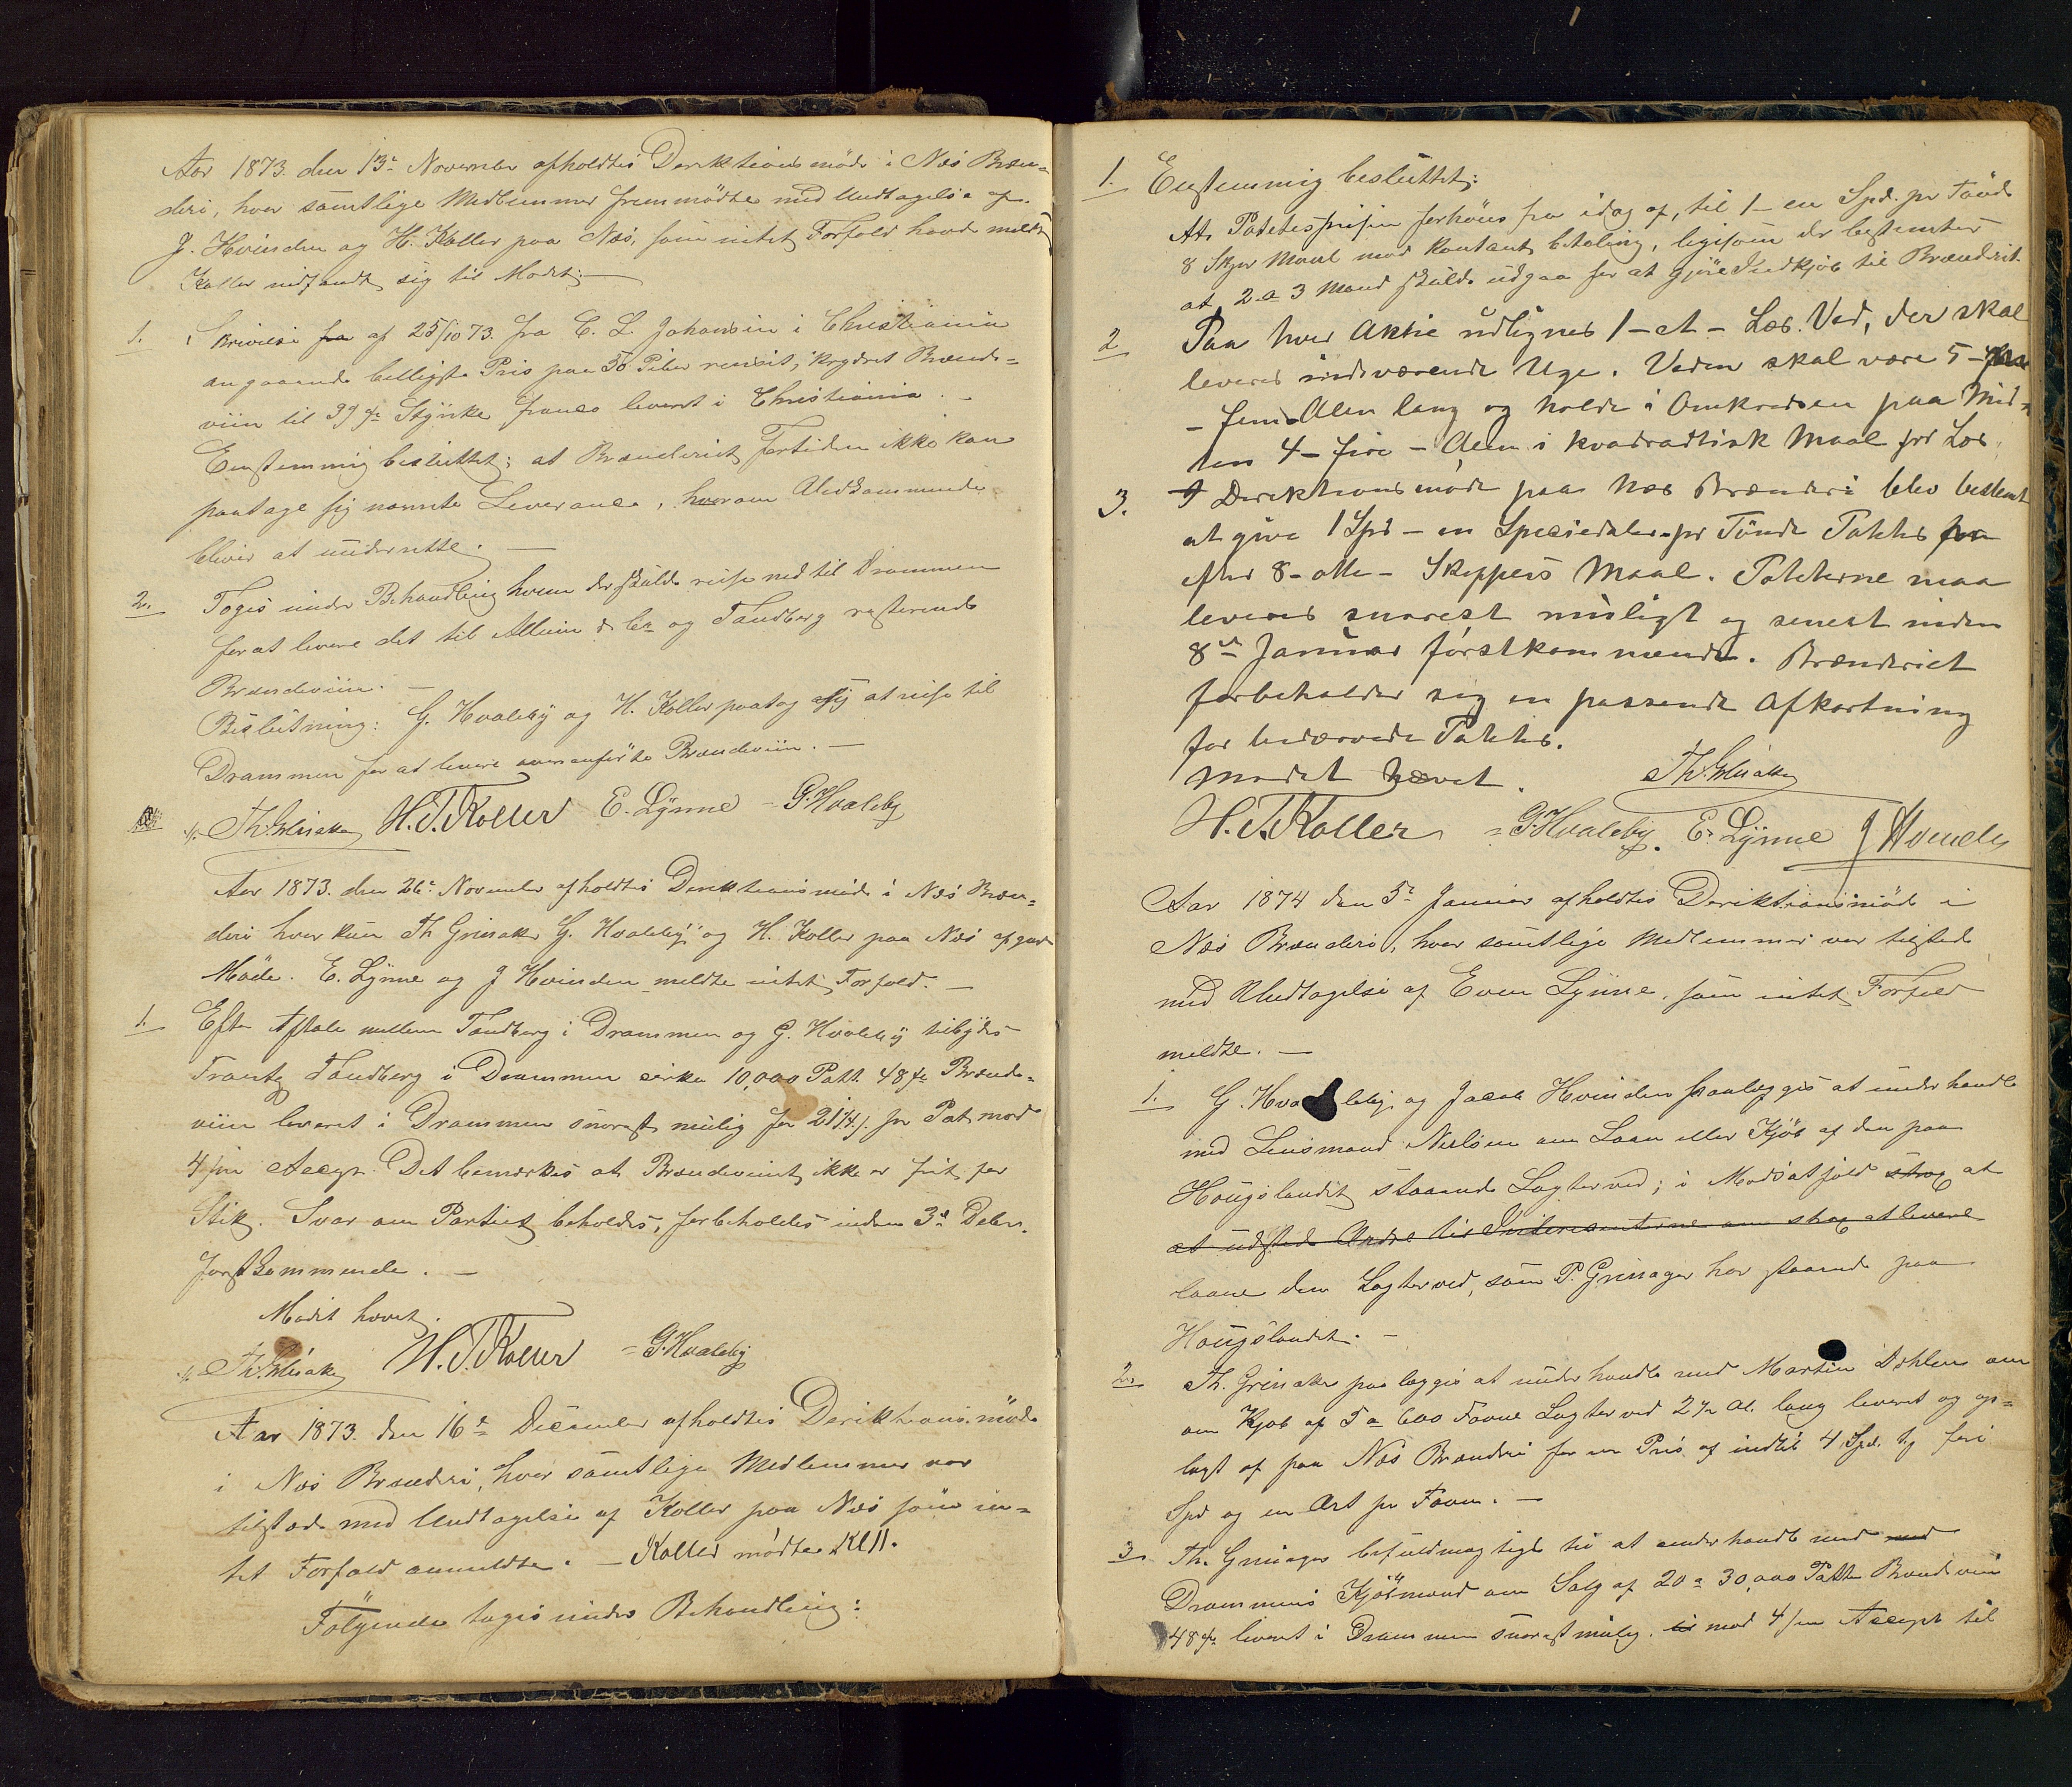 Aar 1873 den 13de November afholdtes Derektionsmöde i Næs Bræn-
deri, hvor samtlige Medlemmer fremmödte med Undtagelse af
J. Hvinden og H. Koller paa Næs, som intet Forfald havde meldt
Koller indfandt sig til Mödet. —
1. Skrivelse fra af 25/10 73. fra C. L. Johansen i Christiania
angaaende billigste Pris paa 50 Piber renset, krydret Brænde-
viin til 39 gr. Styrke franco leveret i Christiania. —
Eenstemmig besluttet: at Brænderiet fortiden ikke kan
paatage sig nævnte Leverance, hvorom Vedkommende
bliver at underrette. —
2. Toges under Behandling hvem der skulde reise ned til Drammen
for at levere det til Allum & Co og Tandberg resterende
Brændeviin. —
Beslutning: G. Hvaleby og H. Koller paatog sig at reise til
Drammen for at levere ovenanførte Brændeviin. —
Th. Grinaker H. T. Koller E. Lynne - G. Hvaleby
Aar 1873. den 26de November afholdtes Direktionsmöde i Næs Bræn-
deri hvor kun Th Grinaker G. Hvaleby og H. Koller paa Næs afgav
Möde. E. Lynne og J Hvinden meldte intet Forfald. —
1. Efter Aftale mellem Tandberg i Drammen og G. Hvaleby tilbydes
Frantz Tandberg i Drammen cirka 10,000 Pott. 48 gr. Brænde-
viin leveret i Drammen snarest mulig for 21 1/4 s. pr Pot mod
4 /m Accept. Det bemærkes at Brændevinet ikke er frit for
Stik. Svar om Partiet beholdes, forbeholdes inden 3de Debr.
förstkommende. —
Mödet hævet.
Th. Grinaker H. T. Koller - G. Hvaleby
Aar 1873. den 16de December afholdtes Derektionsmöde
i Næs Brænderi, hvor samtlige Medlemmer var
tilstede med Undtagelse af Koller paa Næs som in-
tet Forfald anmeldte. — Koller mödte Kl 11.
Fölgende toges under Behandling:
1. Enstemmig besluttet:
At Potetesprisen forhöies fra idag af, til 1 - en Spd. pr Tönde
8 Skpr Maal mod Kontant betaling, ligesom der bestemtes
at 2 a 3 Mand skulde udgaa for at gjöre Indkjöb til Brænderiet.
2 Paa hver Aktie udlignes 1 - et - Læs. Ved, der skal
leveres indeværende Uge. Veden skal være 5 -
- fem Alen lang og holde i Omkredsen paa Mid-
ten 4 - fire - Alen i kvadradtisk Maal pr Læs.
3. I Derektionsmöde paa Næs Brænderi blev bestemt
at give 1 Spd - en Speciedaler pr Tönde Potetes for
efter 8 - otte - Skjeppers Maal. Poteterne maa
leveres snarest muligt og senest inden
8de Januar förstkommende. Brænderiet
forbeholder sig en passende Afkortning
for bedærvede Potetes.
Mödet hævet. Th. Grinaker
H. T. Koller - G. Hvaleby. E. Lynne J Hvinden
Aar 1874 den 5te Januar afholdtes Derektionsmöde i
Næs Brænderi, hvor samtlige Medlemmer var tilstede
med Undtagelse af Even Lynne, som intet Forfald
meldte. —
1. G. Hvaleby og Jacob Hvinden paalægges at underhandle
med Lensmand Nielsen om Laan eller Kjöb af den paa
Hougslandet staaende Lagterved; i Modsatfald strag at
at udstede Ordre til Interesenterne om strag at levere
laane den Lagterved, som P. Grinager har staaende paa
Hougslandet. —
2. Th. Grinaker paalægges at underhandle med Martin Dæhlen om
om Kjöb af 5 a 600 Favne Lagterved 2 1/2 Al. lang leveret og op-
lagt af paa Næs Brænderi for en Pris af indtil 4 Spd. 1/5 fire
Spd og en Ort pr Favn. —
3. Th. Grinager befuldmægtiges til at underhandle med med
Drammens Kjöbmænd om Salg af 20 a 30,000 Potter Brændeviin
48 gr. leveret i Drammen snarest mulig. til mod 4 /m Accept til